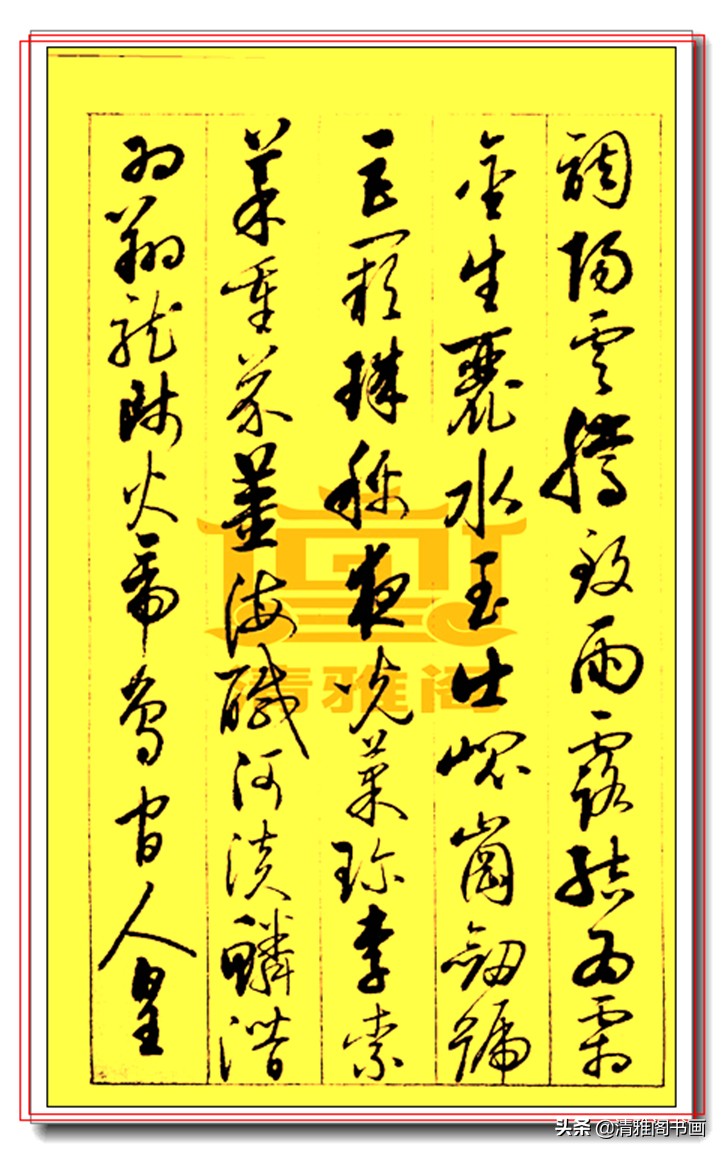 調陽雲騰致雨露結為霜
金生麗水玉出崐崗劔號
巨闕珠稱夜光菓珍李柰
菜重芥薑海醎河淡鱗潛
羽翔龍師火帝鳥官人皇
清雅阁
头条 @清雅阁书画